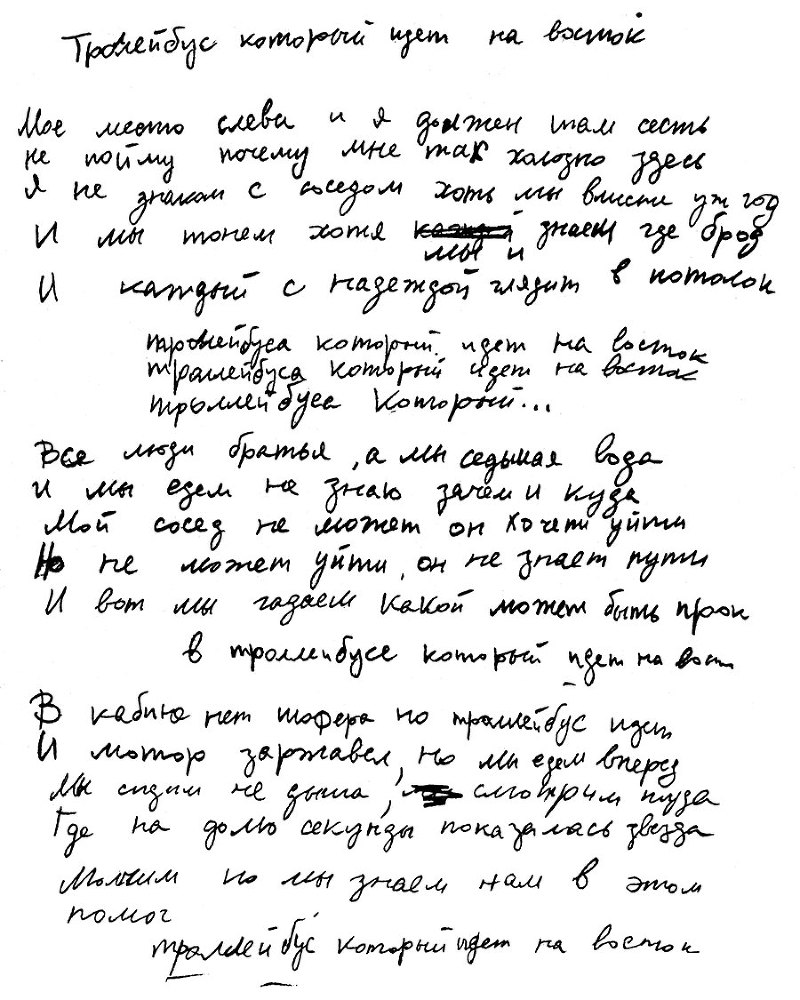 Троллейбус который идет на восток
Мое место слева и я должен там сесть
не пойму почему мне так холодно здесь
Я не знаком с соседом хоть мы вместе уж год
И мы тонем хотя знаем где брод
мы и
И каждый с надеждой глядит в потолок
троллейбуса который идет на восток
траллейбуса который идет на восток
троллейбуса который...
Все люди братья, а мы седьмая вода
и мы едем не знаю зачем и куда
Мой сосед не может он хочет уйти
Но не может уйти, он не знает пути
И вот мы гадаем какой может быть прок
в троллейбусе который идет на вост
В кабине нет шофера но троллейбус идет
И мотор заржавел, но мы едем вперед
Мы сидим не дыша, смотрим туда
Где на долю секунды показалась звезда
Молчим но мы знаем нам в этом
помог
траллейбус который идет на восток